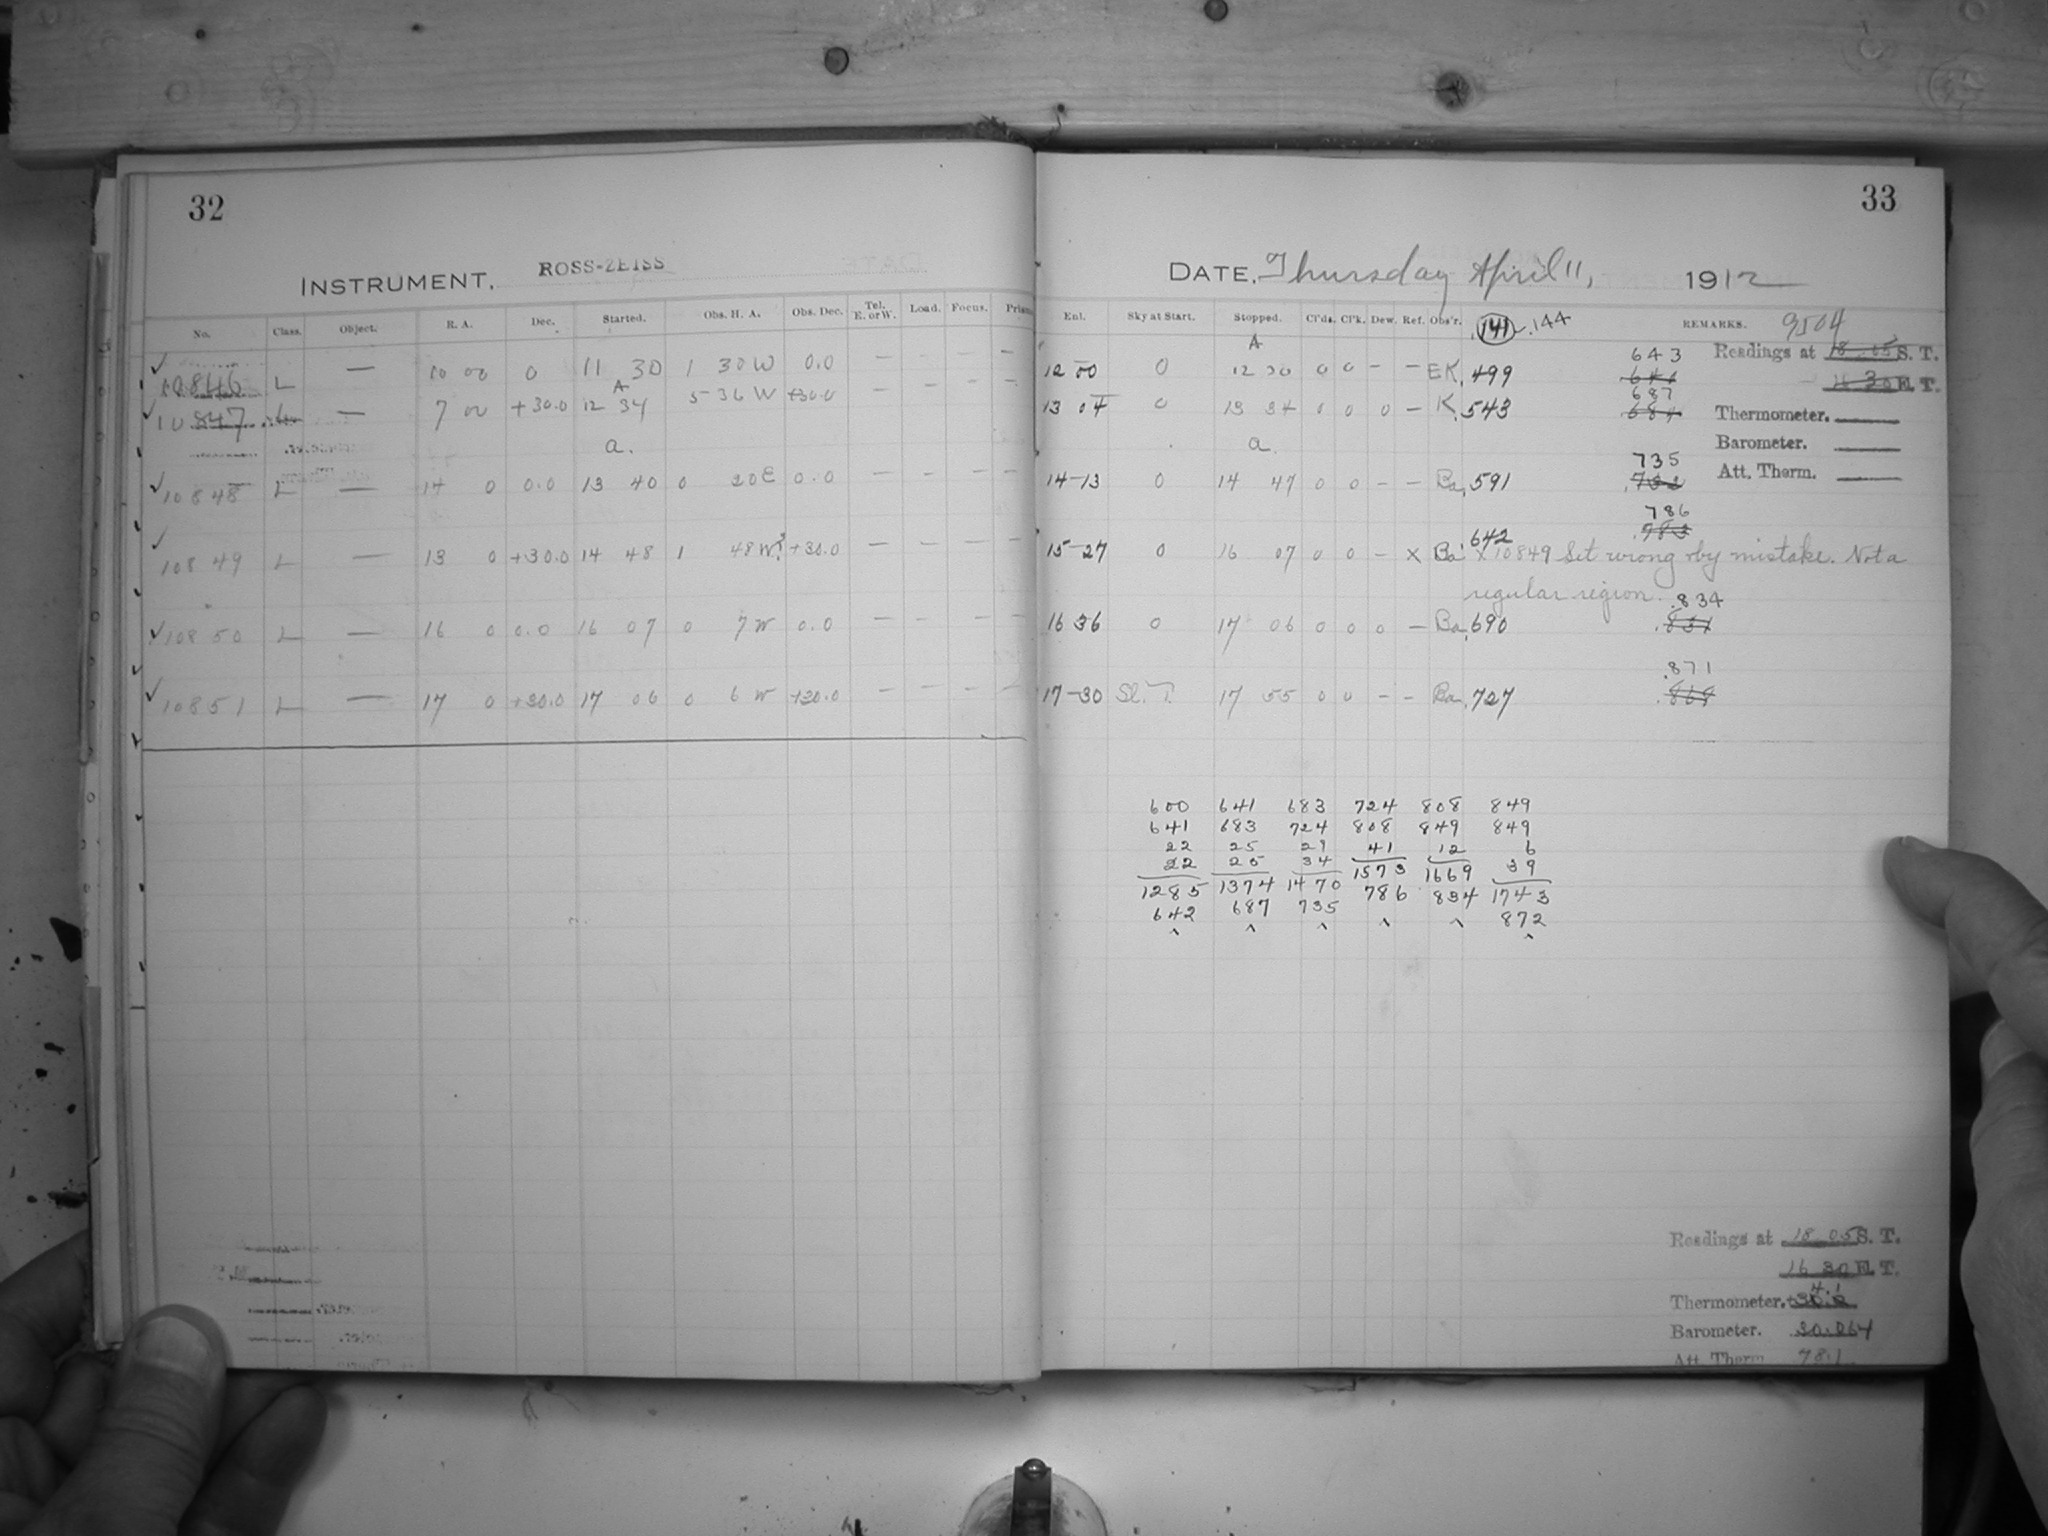 32
INSTRUMENT. ROSS-ZEISS
No. Class. Object. R. A. Dec. Started. Obs. H. A. Obs. Dec. Tel. E. or W. Load. Focus. Prism
✓ 10846 L — 10 00 0 11 30 1 30 W 0.0 — — — —
A
✓ 10847 L — 7 00 +30.0 12 34 5 36 W +30.0 — — — —
a.
✓ 10848 L — 14 0 0.0 13 40 0 20 E 0.0 — — — —
✓ 10849 L — 13 0 +30.0 14 48 1 48 W? +30.0 — — — —
✓ 10850 L — 16 0 0.0 16 07 0 7 W 0.0 — — — —
✓ 10851 L — 17 0 +30.0 17 06 0 6 W +30.0 — — — —
33
DATE, Thursday April 11, 1912
Enl. Sky at Start. Stopped. Cl'ds. Cl'k. Dew. Ref. Obs'r. REMARKS.
141 .144 9504
A
12 00 0 12 30 0 0 — — EK .499 643
641
13 04 0 13 34 0 0 0 — K .543 687
684
a.
14-13 0 14 47 0 0 — — Ba .591 735
.732
15-27 0 16 07 0 0 — × Ba .642 786
.783
× 10849 Set wrong by mistake. Not a
regular region.
16 36 0 17 06 0 0 0 — Ba .690 .834
.831
17-30 Sl. T. 17 55 0 0 — — Ba .727 .871
.868
Readings at 18 05 S. T.
16 30 E. T.
Thermometer.
Barometer.
Att. Therm.
600 641 683 724 808 849
641 683 724 808 849 849
22 25 29 41 12 6
22 25 34 1573 1669 39
1285 1374 1470 786 834 1743
642 687 735 872
Readings at 18 05 S. T.
16 30 E. T.
4.1
Thermometer.
Barometer. 30.064
Att. Therm 78.1